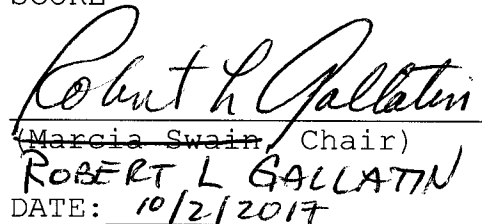 SCORE
Robert L Gallatin
(Marcia Swain, Chair)
ROBERT L GALLATIN
DATE: 10/2/2017